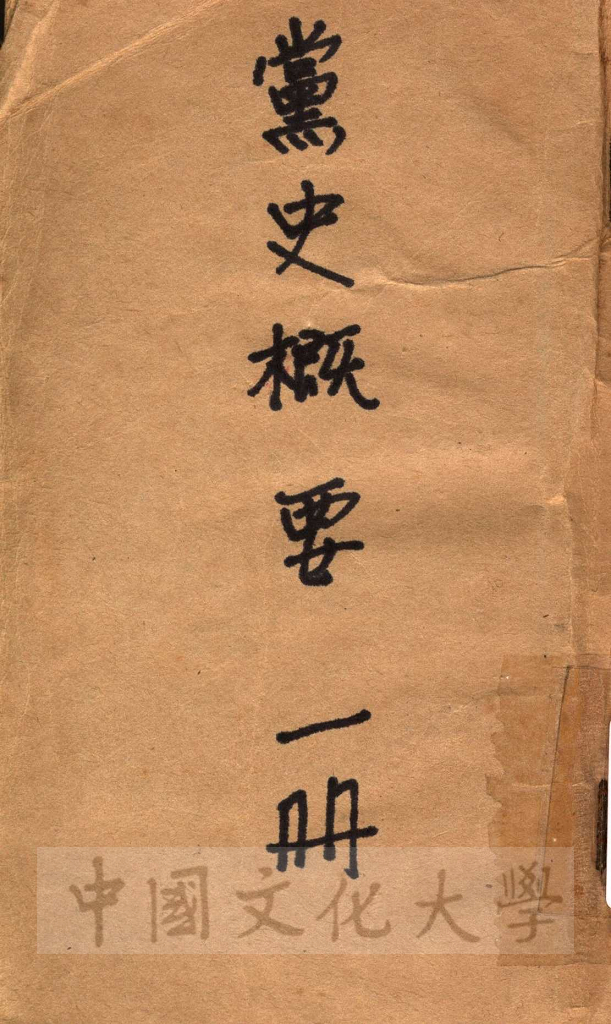 黨史概要 一冊
中國文化大學